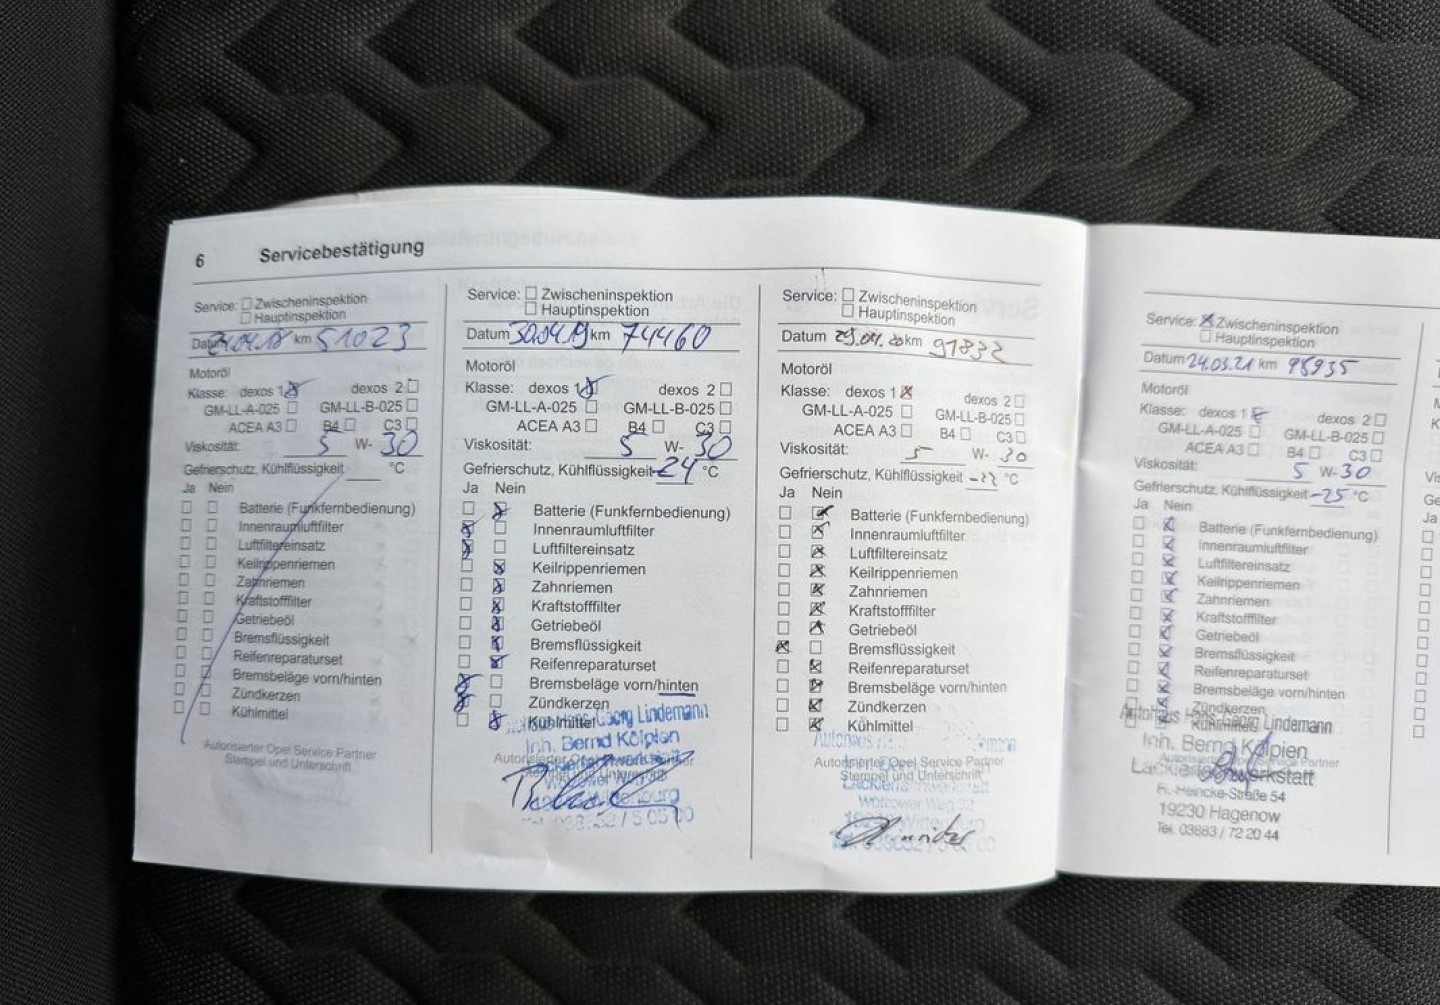 6 Servicebestätigung
Service: Zwischeninspektion
Hauptinspektion
Datum km 51023
Motoröl
Klasse: dexos 1 dexos 2
GM-LL-A-025 GM-LL-B-025
ACEA A3 B4 C3
Viskosität: 5 W- 30
Gefrierschutz, Kühlflüssigkeit °C
Ja Nein
Batterie (Funkfernbedienung)
Innenraumluftfilter
Luftfiltereinsatz
Keilrippenriemen
Zahnriemen
Kraftstofffilter
Getriebeöl
Bremsflüssigkeit
Reifenreparaturset
Bremsbeläge vorn/hinten
Zündkerzen
Kühlmittel
Autorisierter Opel Service Partner
Stempel und Unterschrift
Service: Zwischeninspektion
Hauptinspektion
Datum 30.04.19 km 74460
Motoröl
Klasse: dexos 1 dexos 2
GM-LL-A-025 GM-LL-B-025
ACEA A3 B4 C3
Viskosität: 5 W- 30
Gefrierschutz, Kühlflüssigkeit -24 °C
Ja Nein
Batterie (Funkfernbedienung)
Innenraumluftfilter
Luftfiltereinsatz
Keilrippenriemen
Zahnriemen
Kraftstofffilter
Getriebeöl
Bremsflüssigkeit
Reifenreparaturset
Bremsbeläge vorn/hinten
Zündkerzen
Kühlmittel
Georg Lindemann
Inh. Bernd Kölpien
Service: Zwischeninspektion
Hauptinspektion
Datum 29.04.20 km 91832
Motoröl
Klasse: dexos 1 dexos 2
GM-LL-A-025 GM-LL-B-025
ACEA A3 B4 C3
Viskosität: 5 W- 30
Gefrierschutz, Kühlflüssigkeit °C
Ja Nein
Batterie (Funkfernbedienung)
Innenraumluftfilter
Luftfiltereinsatz
Keilrippenriemen
Zahnriemen
Kraftstofffilter
Getriebeöl
Bremsflüssigkeit
Reifenreparaturset
Bremsbeläge vorn/hinten
Zündkerzen
Kühlmittel
Autorisierter Opel Service Partner
Stempel und Unterschrift
Service: Zwischeninspektion
Hauptinspektion
Datum 24.03.21 km 98935
Motoröl
Klasse: dexos 1 dexos 2
GM-LL-A-025 GM-LL-B-025
ACEA A3 B4 C3
Viskosität: 5 W- 30
Gefrierschutz, Kühlflüssigkeit -25 °C
Ja Nein
Batterie (Funkfernbedienung)
Innenraumluftfilter
Luftfiltereinsatz
Keilrippenriemen
Zahnriemen
Kraftstofffilter
Getriebeöl
Bremsflüssigkeit
Reifenreparaturset
Bremsbeläge vorn/hinten
Zündkerzen
Kühlmittel
Autohaus Hans-Georg Lindemann
Inh. Bernd Kölpien
R.-Heincke-Straße 54
19230 Hagenow
Tel. 03883 / 72 20 44